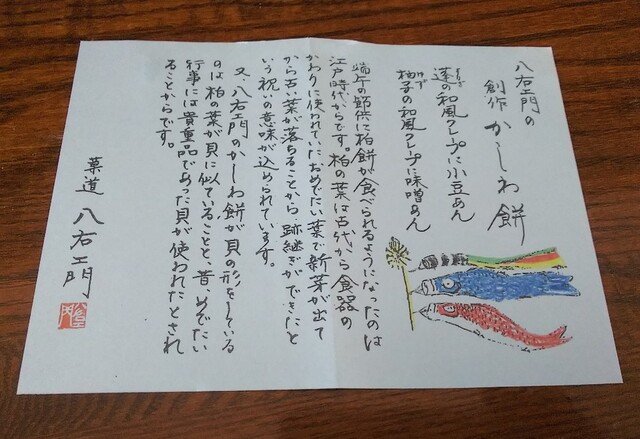 八右ヱ門の
創作 かしわ餅
蓬の和風クレープに小豆あん
よもぎ
柚子の和風クレープに味噌あん
ゆず
端午の節供に柏餅が食べられるようになったのは
江戸時代からです。柏の葉は古代から食器の
かわりに使われていたおめでたい葉で新芽が出て
から古い葉が落ちることから、跡継ぎができたと
いう祝いの意味が込められています。
又、八右ヱ門のかしわ餅が貝の形をしている
のは柏の葉が貝に似ていることと、昔、めでたい
行事には貴重品であった貝が使われたとされ
ることからです。
菓道 八右ヱ門